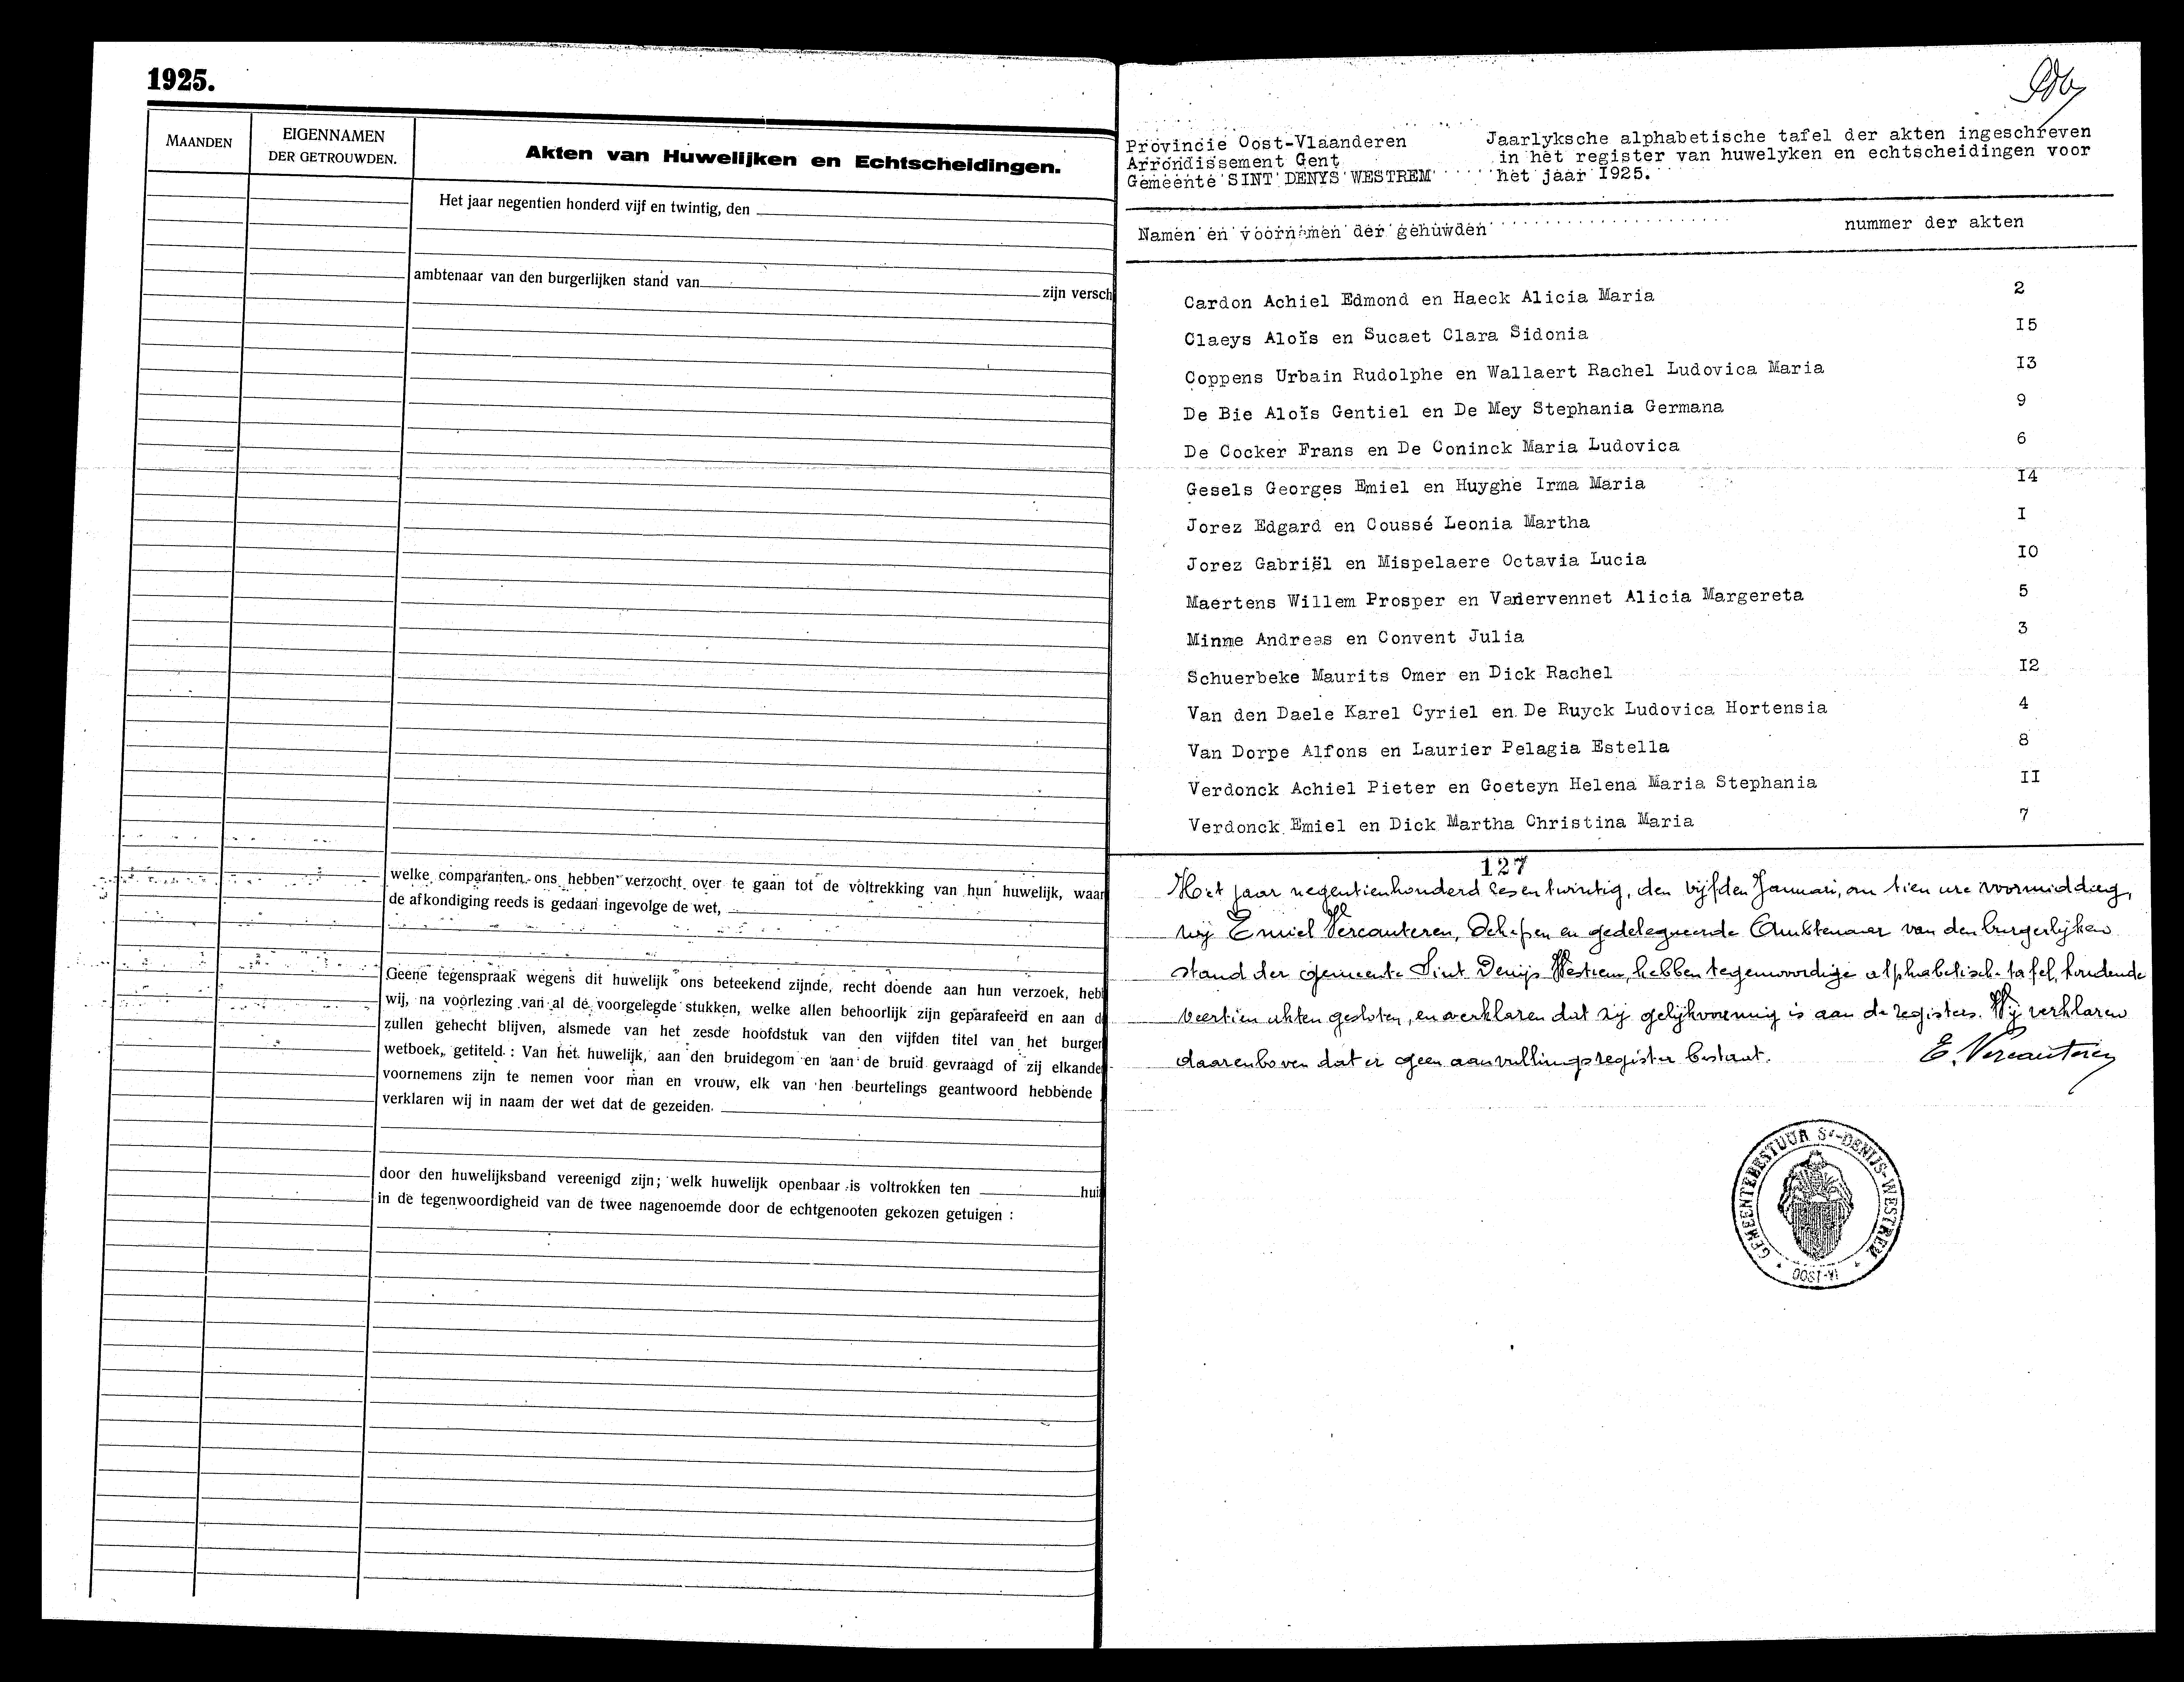 1925.
MAANDEN
EIGENNAMEN
DER GETROUWDEN.
Akten van Huwelijken en Echtscheidingen.
Het jaar negentien honderd vijf en twintig, den
ambtenaar van den burgerlijken stand van zijn versch
welke comparanten ons hebben verzocht over te gaan tot de voltrekking van hun huwelijk, waar
de afkondiging reeds is gedaan ingevolge de wet,
Geene tegenspraak wegens dit huwelijk ons beteekend zijnde, recht doende aan hun verzoek, heb
wij, na voorlezing van al de voorgelegde stukken, welke allen behoorlijk zijn geparafeerd en aan d
zullen gehecht blijven, alsmede van het zesde hoofdstuk van den vijfden titel van het burger
wetboek, getiteld : Van het huwelijk, aan den bruidegom en aan de bruid gevraagd of zij elkande
voornemens zijn te nemen voor man en vrouw, elk van hen beurtelings geantwoord hebbende
verklaren wij in naam der wet dat de gezeiden
door den huwelijksband vereenigd zijn; welk huwelijk openbaar is voltrokken ten hui
in de tegenwoordigheid van de twee nagenoemde door de echtgenooten gekozen getuigen :
Provincie Oost-Vlaanderen
Arrondissement Gent
Gemeente SINT DENYS WESTREM
Jaarlyksche alphabetische tafel der akten ingeschreven
in het register van huwelyken en echtscheidingen voor
het jaar I925.
Namen en voornamen der gehuwden nummer der akten
Cardon Achiel Edmond en Haeck Alicia Maria 2
Claeys Aloïs en Sucaet Clara Sidonia I5
Coppens Urbain Rudolphe en Wallaert Rachel Ludovica Maria I3
De Bie Aloïs Gentiel en De Mey Stephania Germana 9
De Cocker Frans en De Coninck Maria Ludovica 6
Gesels Georges Emiel en Huyghe Irma Maria I4
Jorez Edgard en Coussé Leonia Martha I
Jorez Gabriël en Mispelaere Octavia Lucia IO
Maertens Willem Prosper en Vandervennet Alicia Margereta 5
Minne Andreas en Convent Julia 3
Schuerbeke Maurits Omer en Dick Rachel I2
Van den Daele Karel Cyriel en De Ruyck Ludovica Hortensia 4
Van Dorpe Alfons en Laurier Pelagia Estella 8
Verdonck Achiel Pieter en Goeteyn Helena Maria Stephania II
Verdonck Emiel en Dick Martha Christina Maria 7
127
Het jaar negentienhonderd zes en twintig, den vijfden Januari, om tien ure voormiddag,
wij Emiel Vercauteren, Schepen en gedelegueerde Ambtenaar van den burgerlijken
stand der gemeente Sint Denijs Westrem, hebben tegenwoordige alphabetische tafel, houdende
veertien akten gesloten, en verklaren dat zij gelijkvormig is aan de registers. Wij verklaren
daarenboven dat er geen aanvullingsregister bestaat.
E. Vercauteren
GEMEENTEBESTUUR St-DENIJS-WESTREM
OOST-Vl